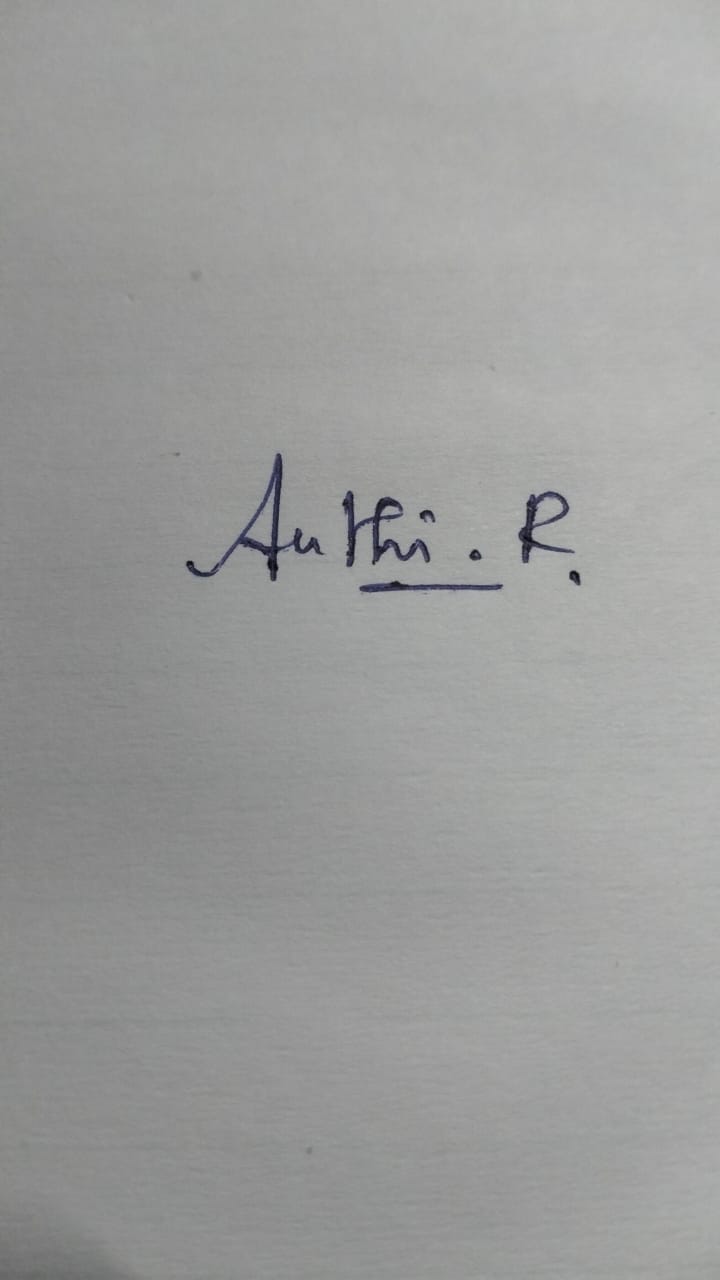 Authi . R.